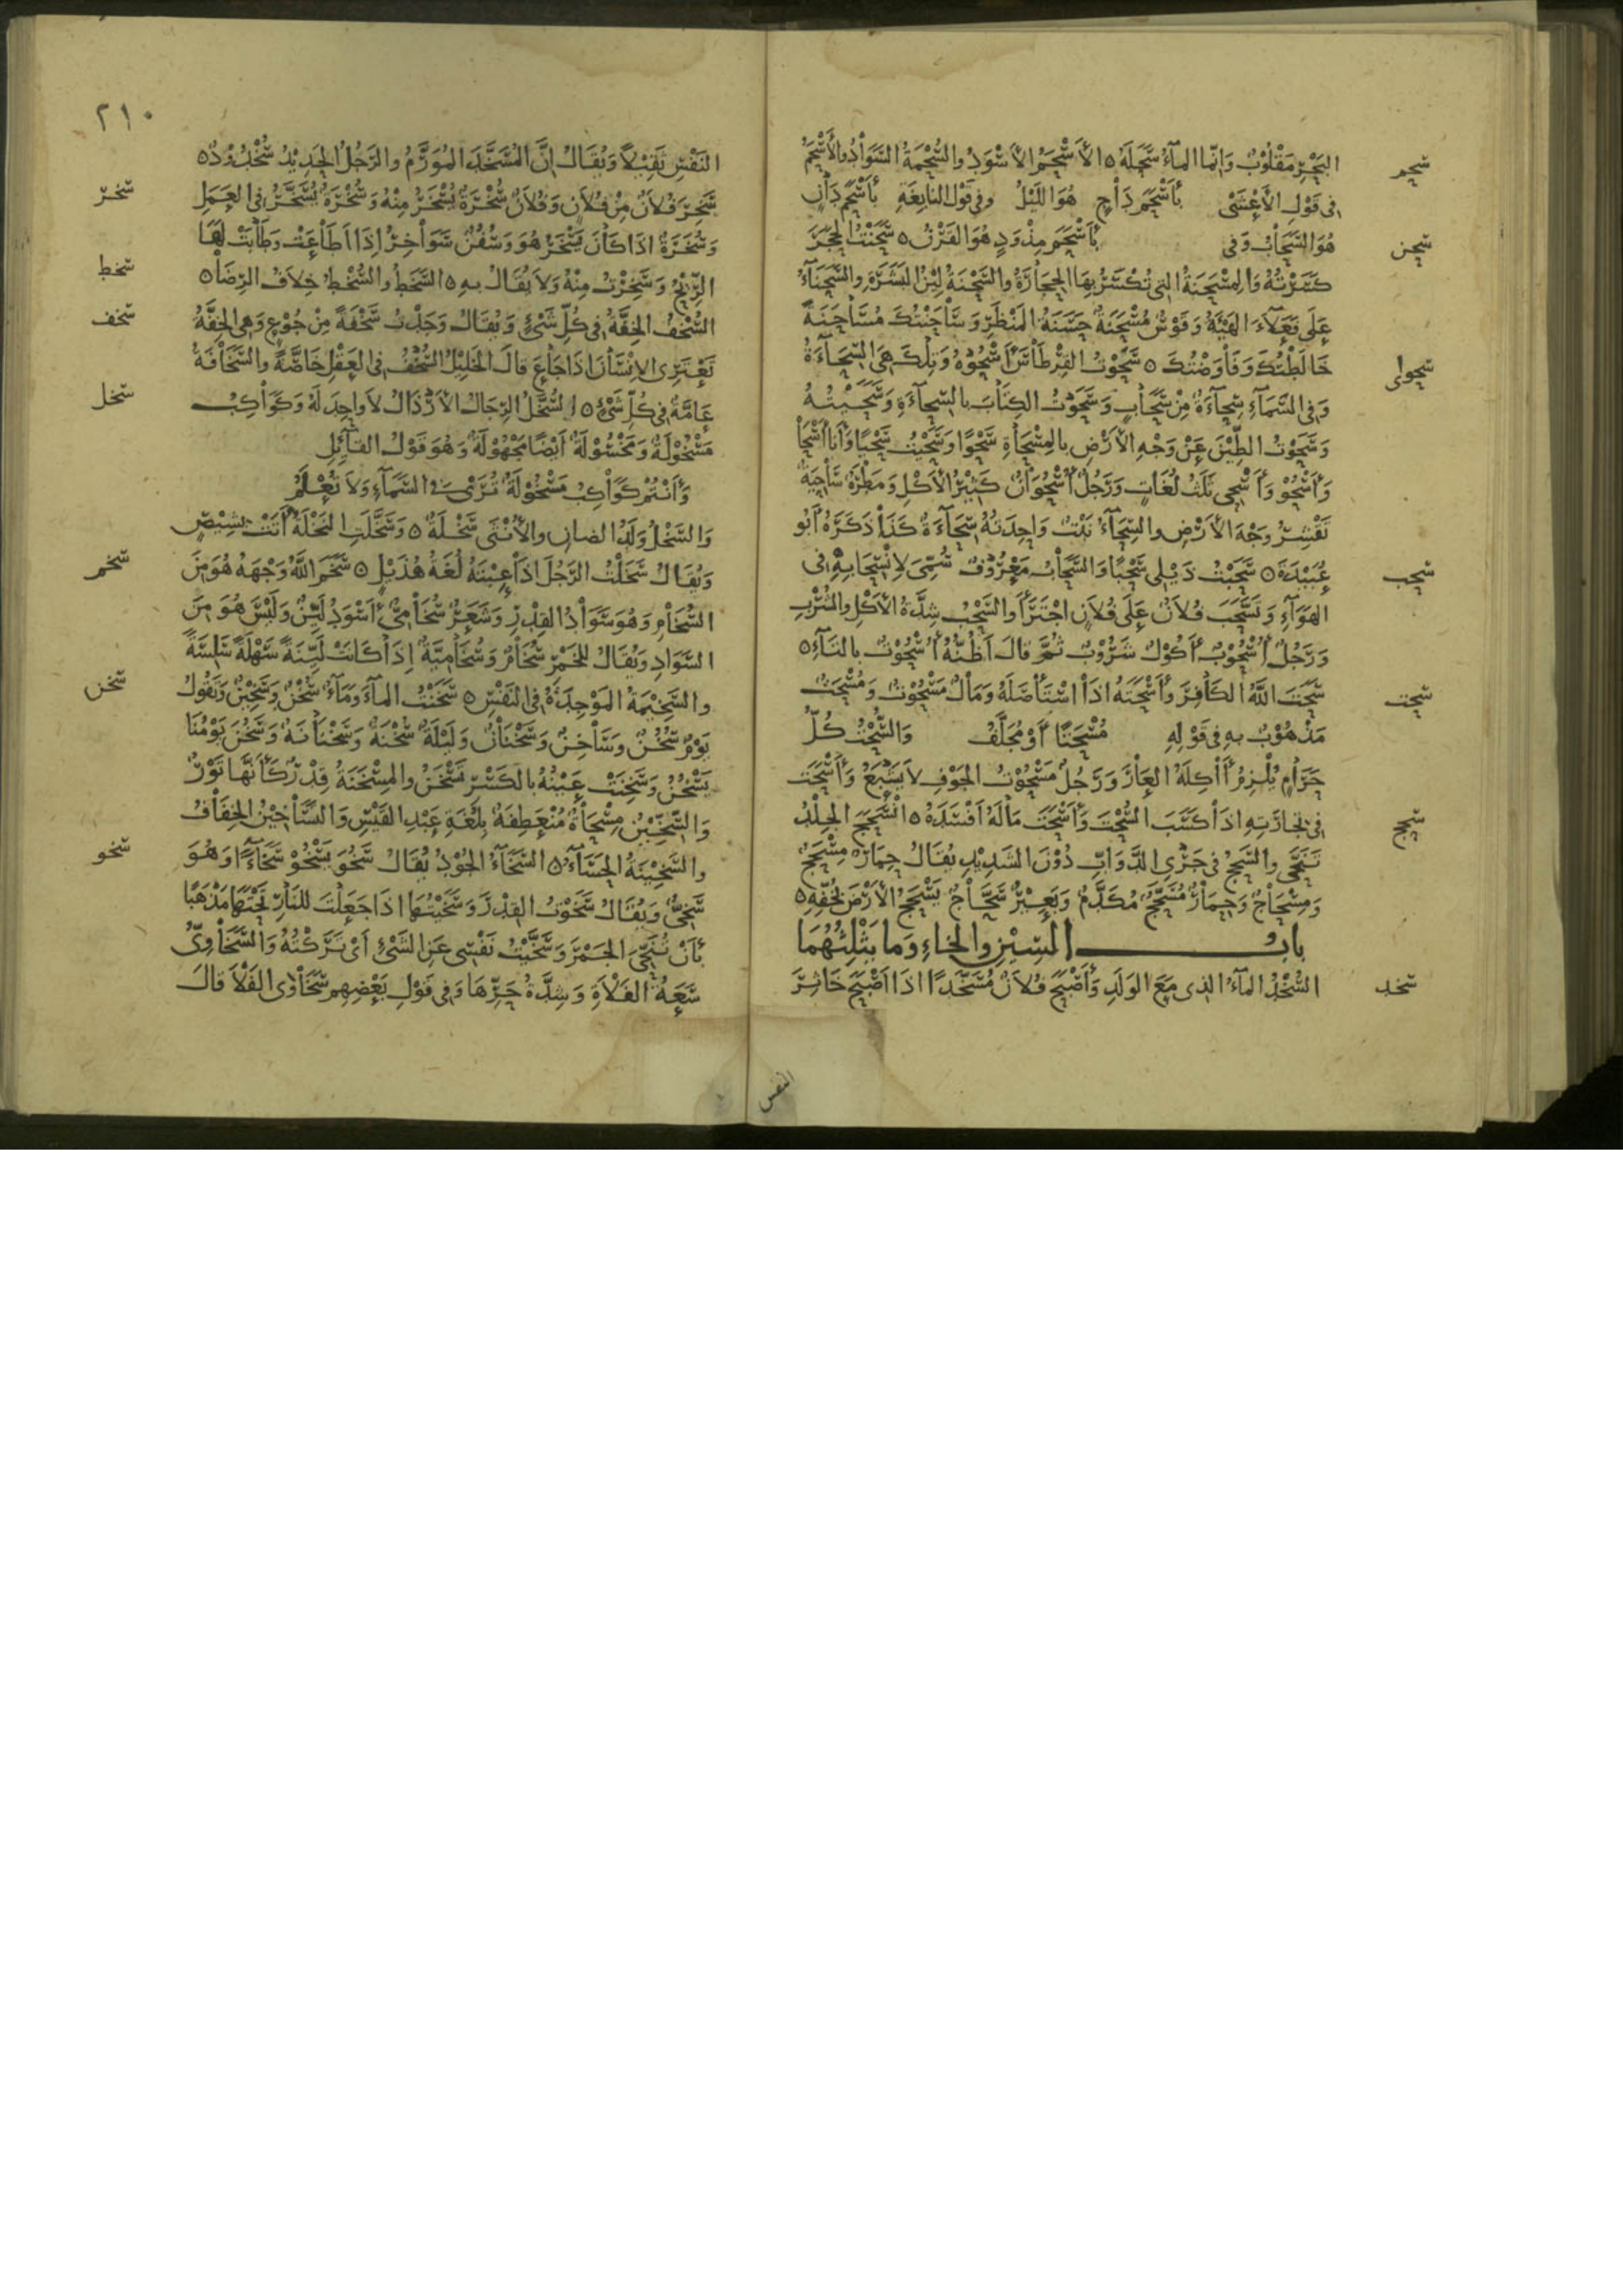 البَحْرِ مَقْلُوْبٌ وَانّما المآءُ سَحَلَهُ ٥ الأَسْحَمُ الأَسْوَدُ والسُّحْمَةُ السَّوَادُ والأَسْحَمُ
سحم
فى قَوْلِ الأَعْشَىٰ بأَسْحَمَ دَاجٍ هُوَ اللَيْلُ وفى قَوْلِ النابِغَةِ بأَسْحَمَ دَانٍ
هُوَ السَّحَابُ وَفى بأَسْحَمَ مِذْوَدٍ هُوَ القَرْنُ ٥ سَحَنْتُ الحَجَرَ
سحن
كَسَرْتُهُ وَالمِسْحَنَةُ التى تُكْسَرُ بِهَا الحِجَارَةُ والسَّحْنَةُ لِيْنُ البَشَرَةِ والسَّحَنَآءُ
عَلَى فَعَلآءَ الهَيْئَةُ وَفَرَسٌ مُسْحَنَةٌ حَسَنَةُ المَنْظَرِ وَسَاحَنْتُكَ مُسَاحَنَةً
خَالَطْتُكَ وَفَاوَضْتُكَ ٥ سَحَوْتُ القِرْطَاسَ أَسْحُوْهُ وَتِلْكَ هِىَ السِّحَآءَةُ
سحواى
وَفى السَّمَآءِ سِحَآءَةٌ مِنْ سَحَابٍ وَسَحَوْتُ الكِتَابَ بالسِّحآءَةِ وَسَحَيْتُهُ
وَسَحَوْتُ الطِّيْنَ عَنْ وَجْهِ الأَرْضِ بالمِسْحَاةِ سَحْوًا وَسَحَيْتُ سَحْيًا وَأَنا أَسْحَا
وَأَسْحُوْ وَأَسْحِى ثَلَثُ لُغَاتٍ وَرَجُلٌ أُسْحُوَانٌ كَثِيْرُ الأَكْلِ وَمَطْرَةٌ سَاحِيَةٌ
تَقْشِرُ وَجْهَ الأَرْضِ والسِّحَآءُ نَبْتٌ وَاحِدَتُهُ سِحَآءَةٌ كَذَا ذَكَرَهُ أَبُو
عُبَيْدَةَ ٥ سَحَبْتُ ذَيْلى سَحْبًا وَالسَّحَابُ مَعْرُوْفٌ سُمِّىَ لِانْسِحَابِهِ فى
سحب
الهَوَآءِ وَتَسَحَّبَ فُلاَنٌ عَلَى فُلاَنٍ اجْتَرَأَ والسَّحْبُ شِدَّةُ الأَكْلِ والشُّرْبِ
وَرَجُلٌ أُسْحُوْبٌ أَكُوْلٌ شَرُوْبٌ ثُمَّ قالَ أَظُنُّهُ أُسْحُوْتٌ بالتآءِ ٥
سَحَتَ اللّٰهُ الكَافِرَ وأَسْحَتَهُ اذَا اسْتَأْصَلَهُ وَمَالٌ مَسْحُوْتٌ وَمُسْحَتٌ
سحت
مَذْهُوْبٌ بهِ فى قَوْلِهِ مُسْحَتًا أَوْ مُجَلَّفُ وَالسُّحْتُ كُلُّ
حَرَامٍ يُلْزِمُ أَاكِلَهُ العَارَ وَرَجُلٌ مَسْحُوْتُ الجَوْفِ لاَ يَشْبَعُ وَأَسْحَتَ
فى تجارَتِهِ اذَا كَسَبَ السُّحْتَ وَأَسْحَتَ مَالَهُ أَفْسَدَهُ ٥ انْسَحَجَ الجِلْدُ
سحج
والسَّحْجُ فى جَرْىِ الدَّوَابِّ دُوْنَ الشَدِيْدِ يُقَالُ حِمَارٌ مِسْحَجٌ
وَمِسْحَاجٌ وَحِمَارٌ مُسَحَّجٌ مُكَدَّمٌ وَبَعِيْرٌ سَحَّاجٌ يَسْحَجُ الأَرْضَ بخُفِّهِ ٥
بابُ السِّيْنِ والخاءِ وَما يَثْلِثُهُمَا
السُّخْدُ المآءُ الذى مَعَ الوَلَدِ وَأَصْبَحَ فُلاَنٌ مُسَخَّدًا اذَا أَصْبَحَ خَاثِرَ
سخد
النفس
٢١٠
النَفْسِ ثَقِيْلاً وَيُقَالُ إِنَّ المُسَخَّدَ المُوَرَّمُ والرَجُلُ الحَدِيْدُ سُخْدُوْدٌ ٥
سَخِرَ فُلاَنٌ مِنْ فُلاَنٍ وَفُلاَنٌ سُخْرَةٌ يُسْخَرُ مِنْهُ وَسُخْرَةٌ يُسَخَّرُ فى العَمَلِ
سخر
وَسُخَرَةٌ اذَا كَانَ يَسْخَرُ هُوَ وَسُفُنٌ سَوَاخِرُ إِذَا أَطَاعَتْ وَطَابَتْ لَهَا
الرِّيْحُ وَسَخِرْتُ مِنْهُ وَلاَ يُقَالُ بِهِ ٥ السَّخَطُ والسُّخْطُ خِلاَفُ الرِّضَا ٥
سخط
السُّخْفُ الخِفَّةُ فى كُلِّ شَىْءٍ وَيُقَالُ وَجَدْتُ سَخْفَةً مِنْ جُوْعٍ وَهى الخِفَّةُ
سخف
تَعْتَرِى الإنْسَانَ اذَا جَاعَ قالَ الخَلِيْلُ السُّخْفُ فى العَقْلِ خَاصَّةً والسَّخَافَةُ
عَامَّةٌ فى كُلِّ شَىْءٍ ٥ السُّخَّلُ الرِجَالُ الأَرْذَالُ لاَ وَاحِدَ لَهُ وَكَوَاكِبُ
سخل
مَسْخُوْلَةٌ وَمَخْسُوْلَةٌ أَيْضًا مَجْهُوْلَةٌ وَهُوَ قَوْلُ القآئِلِ
وَأَنْتُمْ كَوَاكِبُ مَسْخُوْلَةٌ تُرَىٰ فى السَّمَآءِ وَلاَ تُعْلَمُ
وَالسَّخْلُ وَلَدُ الضانِ والأُنْثَى سَخْلَةٌ ٥ وَسَخَّلَتِ النَخْلَةُ أَتَتْ بِشِيْصٍ
وَيُقَالُ سَخَلْتُ الرَّجُلَ اذَا عِبْتَهُ لُغَةُ هُذَيْلٍ ٥ سَخَّمَ اللّٰهُ وَجْهَهُ هُوَ مِنَ
سخم
السُّخَامِ وَهُوَ سَوَادُ القِدْرِ وَشَعَرٌ سُخَامِىٌّ أَسْوَدُ لَيِّنٌ وَلَيْسَ هُوَ مِنَ
السَّوَادِ وَيُقَالُ للخَمْرِ سُخَامٌ وَسُخَامِيَّةٌ إِذَا كَانَتْ لَيِّنَةً سَهْلَةً سَلِسَةً
والسَّخِيْمَةُ المَوْجِدَةُ فى النَفْسِ ٥ سَخَنْتُ المآءَ وَمَآءٌ سُخْنٌ وَسَخِيْنٌ وَتَقُوْلُ
سخن
يَوْمٌ سُخُنٌ وَسَاخِنٌ وَسَخْنَانٌ وَلَيْلَةٌ سُخْنَةٌ وَسَخْنَانَةٌ وَسَخُنَ يَوْمُنَا
يَسْخُنُ وَسَخِنَتْ عَيْنُهُ بالكَسْرِ تَسْخَنُ والمِسْخَنَةُ قِدْرٌ كَأَنَّها تَوْرٌ
وَالسِّخِّيْنُ مِسْحَاةٌ مُنْعَطِفَةٌ بِلُغَةِ عَبْدِ القَيْسِ وَالتَّسَاخِيْنُ الخِفَافُ
والسَّخِيْنَةُ الحَسَآءُ ٥ السَّخَآءُ الجُوْدُ يُقَالُ سَخُوَ يَسْخُوْ سَخَآءً وَهُوَ
سخو
سَخِىٌّ وَيُقَالُ سَخَوْتُ القِدْرَ وَسَخَيْتُهَا اذَا جَعَلْتَ للنَارِ تَحْتَهَا مَذْهَبًا
بأَنْ تُنَحِّىَ الجَمْرَ وَسَخَّيْتُ نَفْسِى عَنِ الشَىْءِ أَىْ تَرَكْتُهُ وَالسَّخَاوِىُّ
سَعَةُ الفَلاَةِ وَشِدَّةُ حَرِّهَا وَفى قَوْلِ بَعْضِهِمْ سَخَاوِىُّ الفَلاَ قالَ